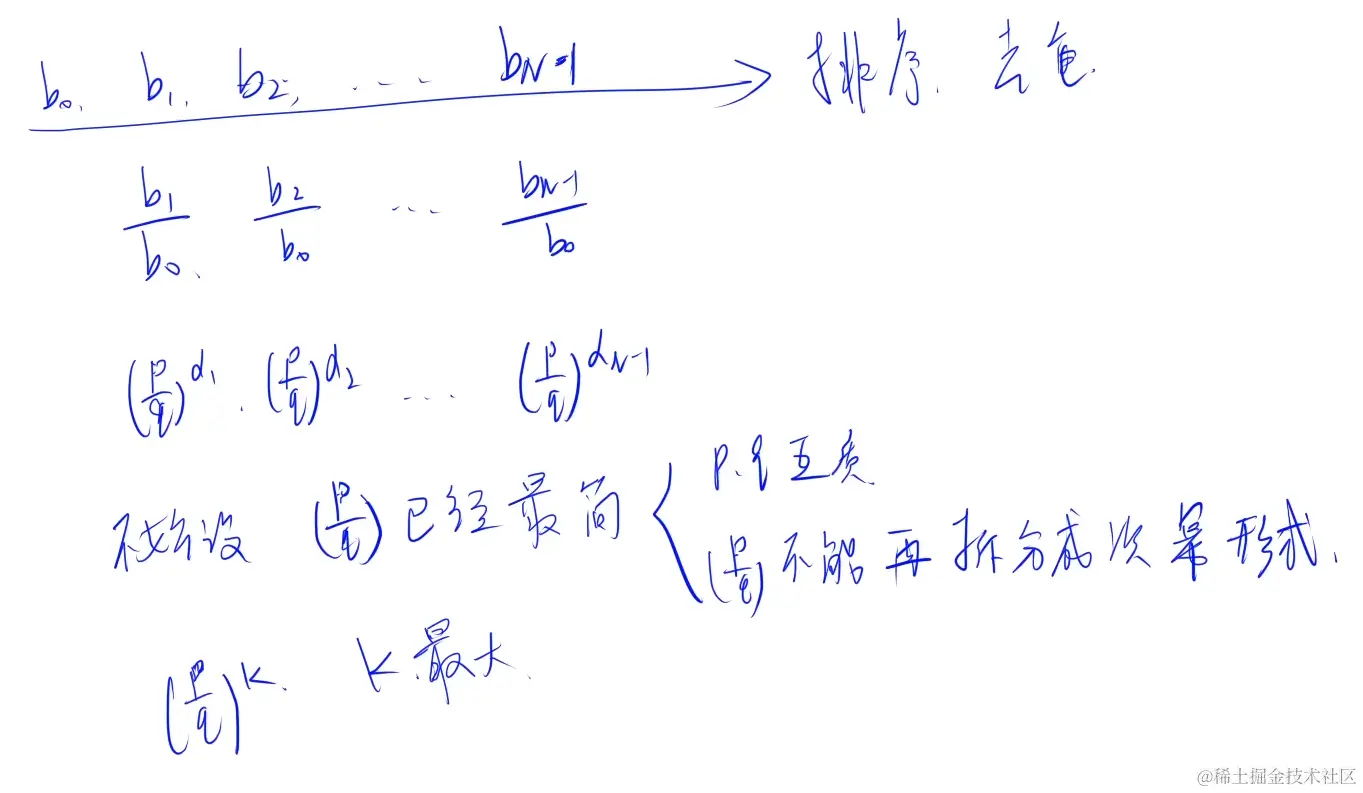 b₀, b₁, b₂, ... b_{N-1} → 排序、去重.
b₁/b₀, b₂/b₀ ... b_{N-1}/b₀
(p/q)^{α₁}, (p/q)^{α₂} ... (p/q)^{α_{N-1}}
不妨设 (p/q) 已经最简 { p、q 互质
(p/q) 不能再拆分成次幂形式.
(p/q)^k. k最大.
@稀土掘金技术社区